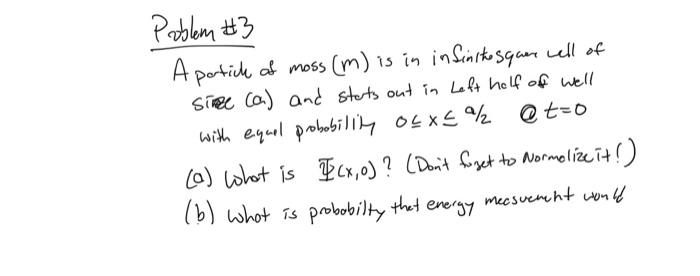 Problem #3
A particle of mass (m) is in infinite square well of
size (a) and starts out in Left half of well
with equal probability 0 ≤ x ≤ a/2 @ t=0
(a) What is Ψ(x,0)? (Don't forget to Normalize it!)
(b) What is probability that energy measurement would